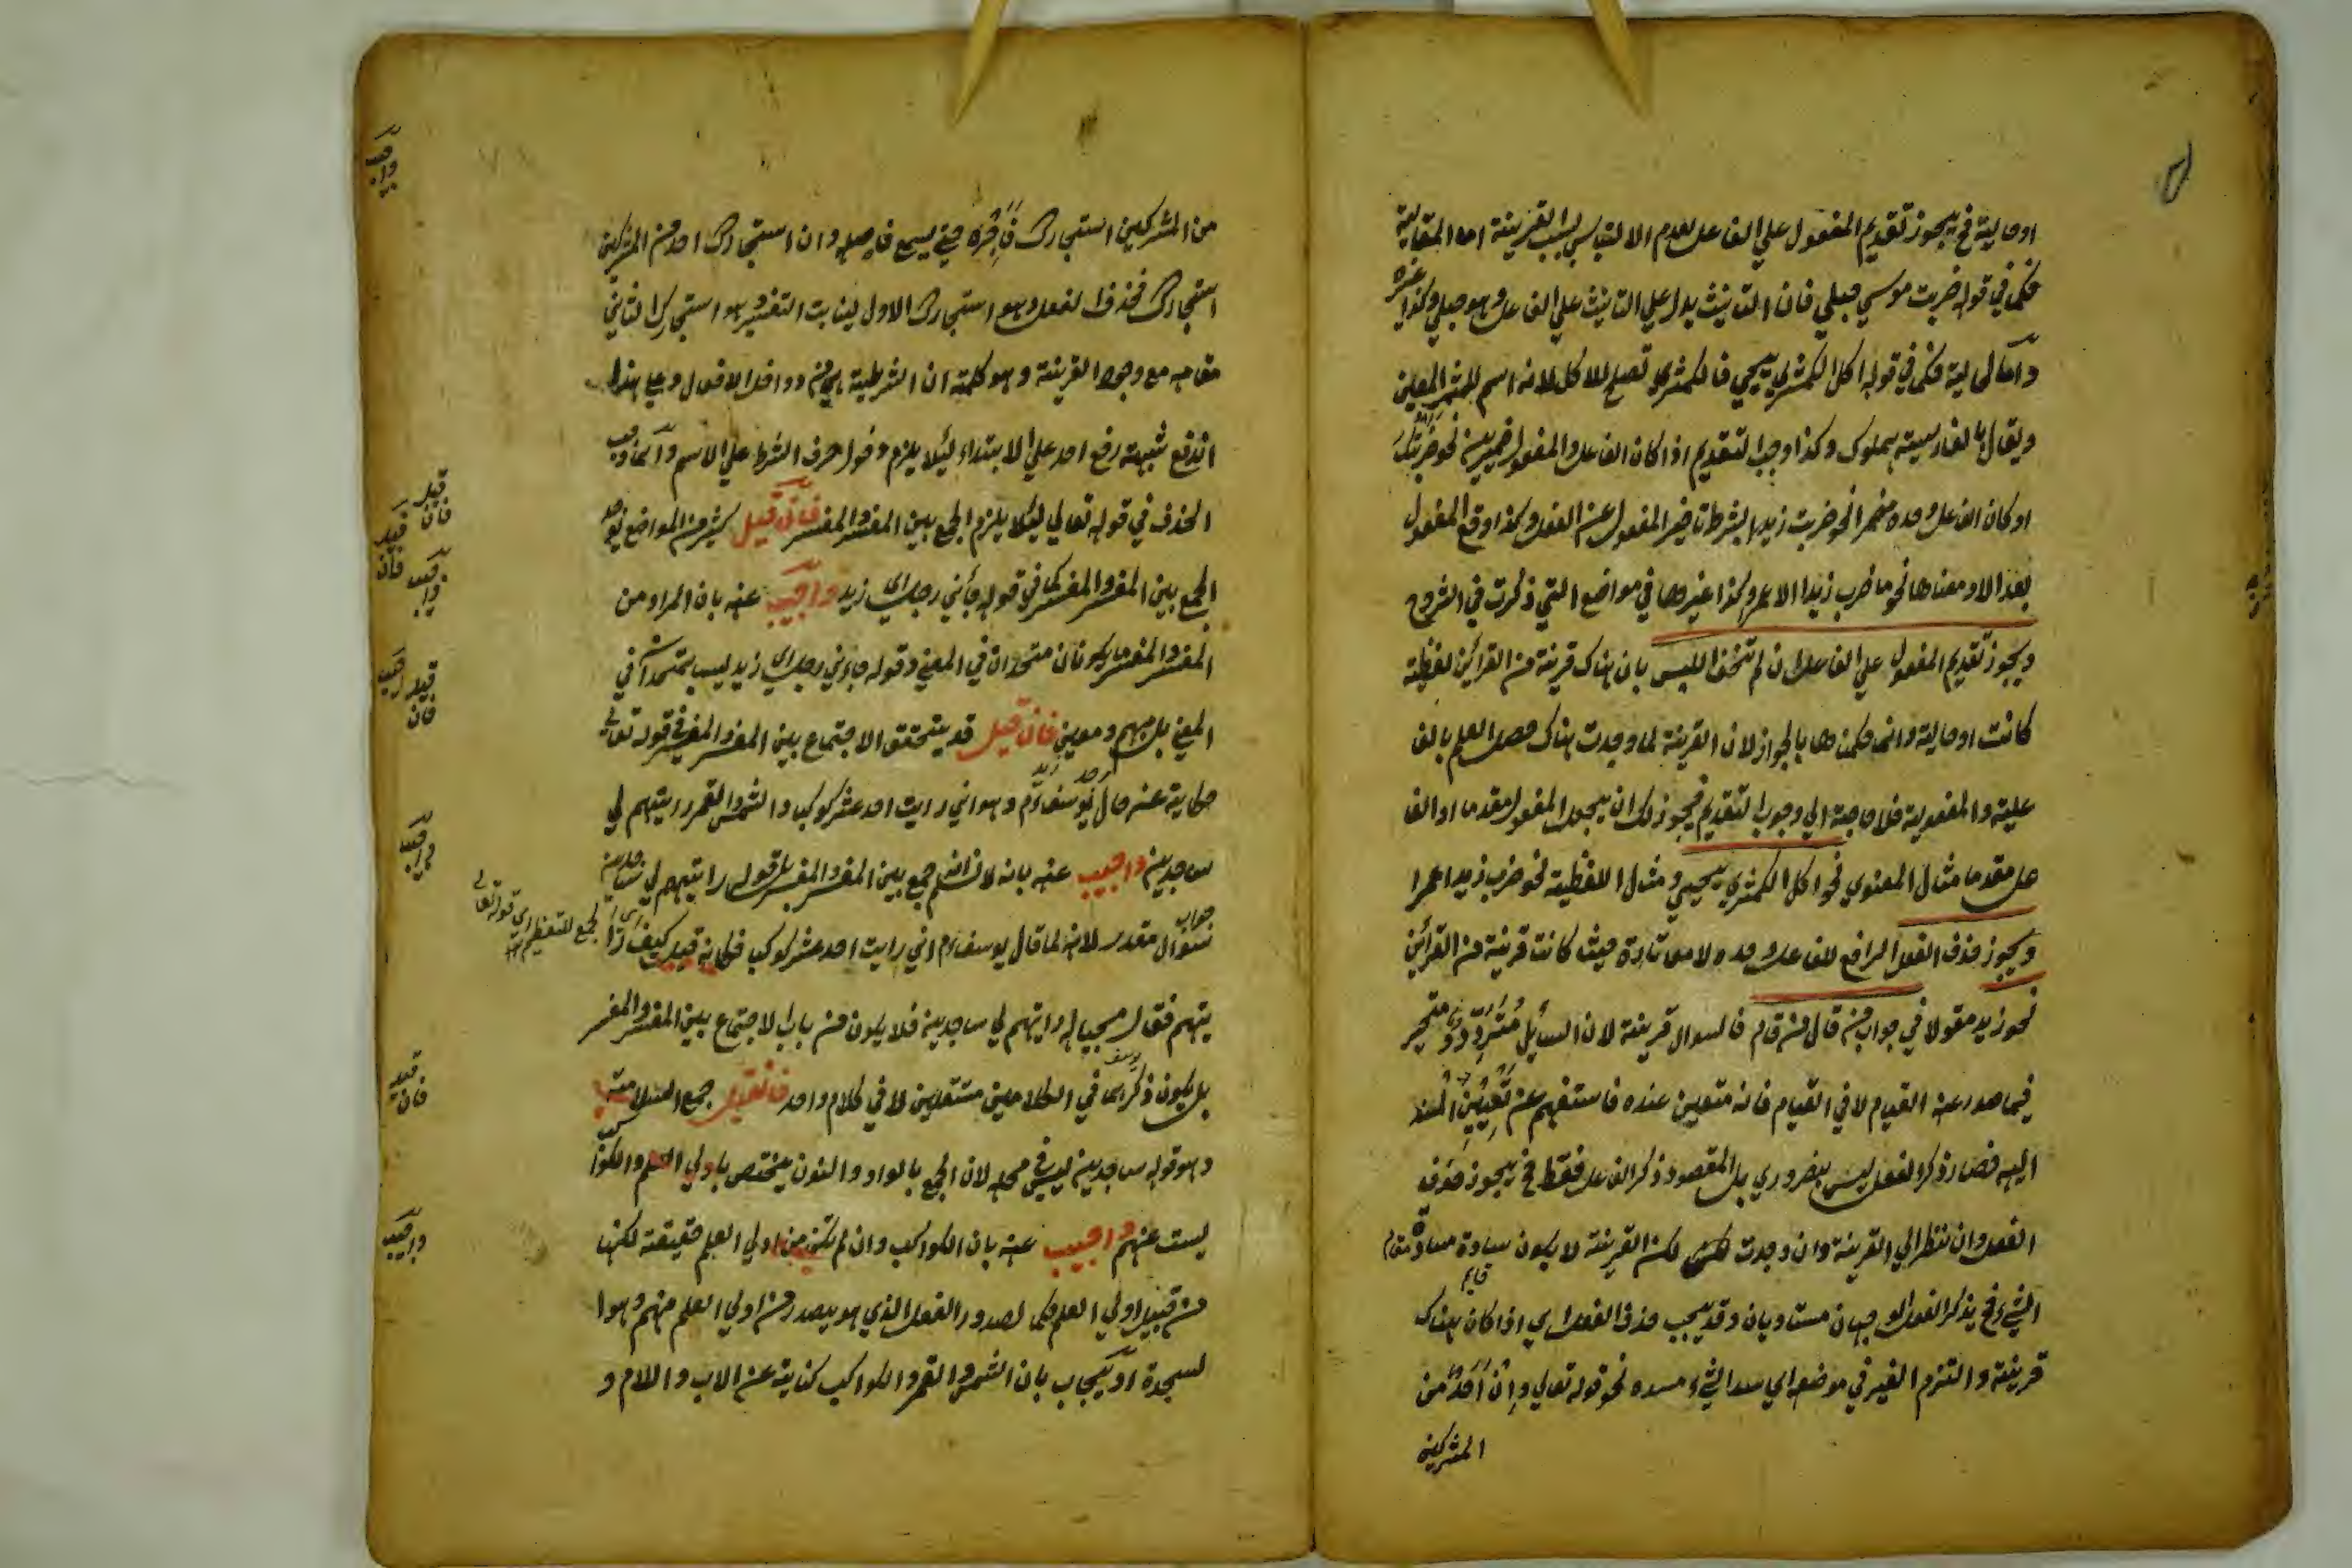 او حالية فح يجوز تقديم المفعول علي الفاعل لعدم الالتباس بسبب القرينة اما المقالية
فكما في قوله ضربت موسي حبلي فان التانيث يدل علي التانيث علي الفاعل وهو حبلي وكذا غيره
واما الحالية فكما في قوله اكل الكمثري يحيي فالكمثري تصلح للاكل لانه اسم للثمر المعين
ويقال بالفارسية وكذا وجب التقديم اذا كان الفاعل والمفعول ضميرين نحو ضربتك
او كان الفاعل وحده مضمرا نحو ضربت زيدا بشرط تاخير المفعول عن الفعل وكذا وقع المفعول
بعد الا او معناها نحو ما ضرب زيدا الا عمرو وكذا غيرها في مواضع التي ذكرت في الشروح
ويجوز تقديم المفعول علي الفاعل ان لم تخف اللبس بان هناك قرينة من القرائن لفظية
كانت او حالية وانما حكمنا بالجواز لان القرينة لما وجدت هناك حصل العلم بالفا
علية والمفعولية فلا حاجة الي وجوب التقديم فيجوز لك ان يجعل المفعول مقدما او الفا
عل مقدما مثال المعنوي نحو اكل الكمثري يحيي ومثال اللفظية نحو ضرب زيدا عمرا
ويجوز حذف الفعل الرافع للفاعل وحده ولا معا تارة حيث كانت قرينة من القرائن
نحو زيد مقولا في جواب من قال من قام فالسوال قرينة لان السائل متردد متحير
فيما صدر عنه القيام لا في القيام فانه متعين عنده فاستفهم عن تعيين المسند
اليه فصار ذكر الفعل ليس بضروري بل المقصود ذكر الفاعل فقط فح يجوز حذف
الفعل وان ننظر الي القرينة وان وجدت لكن القرينة لا يكون سادة مسادة مقام
الشيء فح يذكر الفعل الوجهان مستاويان وقد يجب حذف الفعل اي اذا كان هناك
قرينة والتزم الغير في موضعه اي سد الشيء مسده نحو قوله تعالي وان احد من
المشركين
من المشركين استجارك فاجره حتي يسمع فاصله وان استجارك احد من المشركين
استجارك فحذف الفعل وهو استجارك الاول لينابت التفسير هو استجارك الثاني
مقامه مع وجود القرينة وهو كلمة ان الشرطية دواخل الافعال وعلي هذا
اندفع شبهة رفع احد علي الابتداء لئلا يلزم دخول حرف الشرط علي الاسم وانما وجب
الحذف في قوله تعالي لئلا يلزم الجمع بين المفسر والمفسر فان قيل كثير من المواضع يوجد
الجمع بين المفسر والمفسر كما في قوله جاءني رجل اي زيد واجيب عنه بان المراد من
المفسر والمفسر ما يكونان متحدان في المعني وقوله جاءني رجل اي زيد ليس بمتحد في
المعني بل مبهم ومعين فان قيل قد يتحقق الاجتماع بين المفسر والمفسر في قوله تعالي
حكاية عن حال يوسف وهو اني رايت احد عشر كوكبا والشمس والقمر رايتهم لي
ساجدين واجيب عنه بانه لا نسلم جمع بين المفسر والمفسر بل قوله رايتهم لي ساجدين
جواب سوال مقدر لانه لما قال يوسف اني رايت احد عشر كوكبا فكانه قيل كيف را
يتهم فقال مجيبا له رايتهم لي ساجدين فلا يكون من باب الاجتماع بين المفسر والمفسر
بل يكون ذكرهما في الكلامين مستقلين لا في كلام واحد فان قيل جمع السلامة
وهو قوله ساجدين ليس في محله لان الجمع بالواو والنون يختص باولي العلم والكواكب
ليست عنهم واجيب عنه بان الكواكب وان لم تكن من اولي العلم حقيقة لكنها
من قبيل اولي العلم حكما لصدور الفعل الذي هو يصدر من اولي العلم منهم وهو ا
لسجدة او يجاب بان الشمس والقمر والكواكب كناية عن الاب والام و
واجيب
قيل فان
قيل فان
واجيب
قيل فان
واجيب
الجمع للتعظيم اي قوله تعالي
قيل فان
واجيب